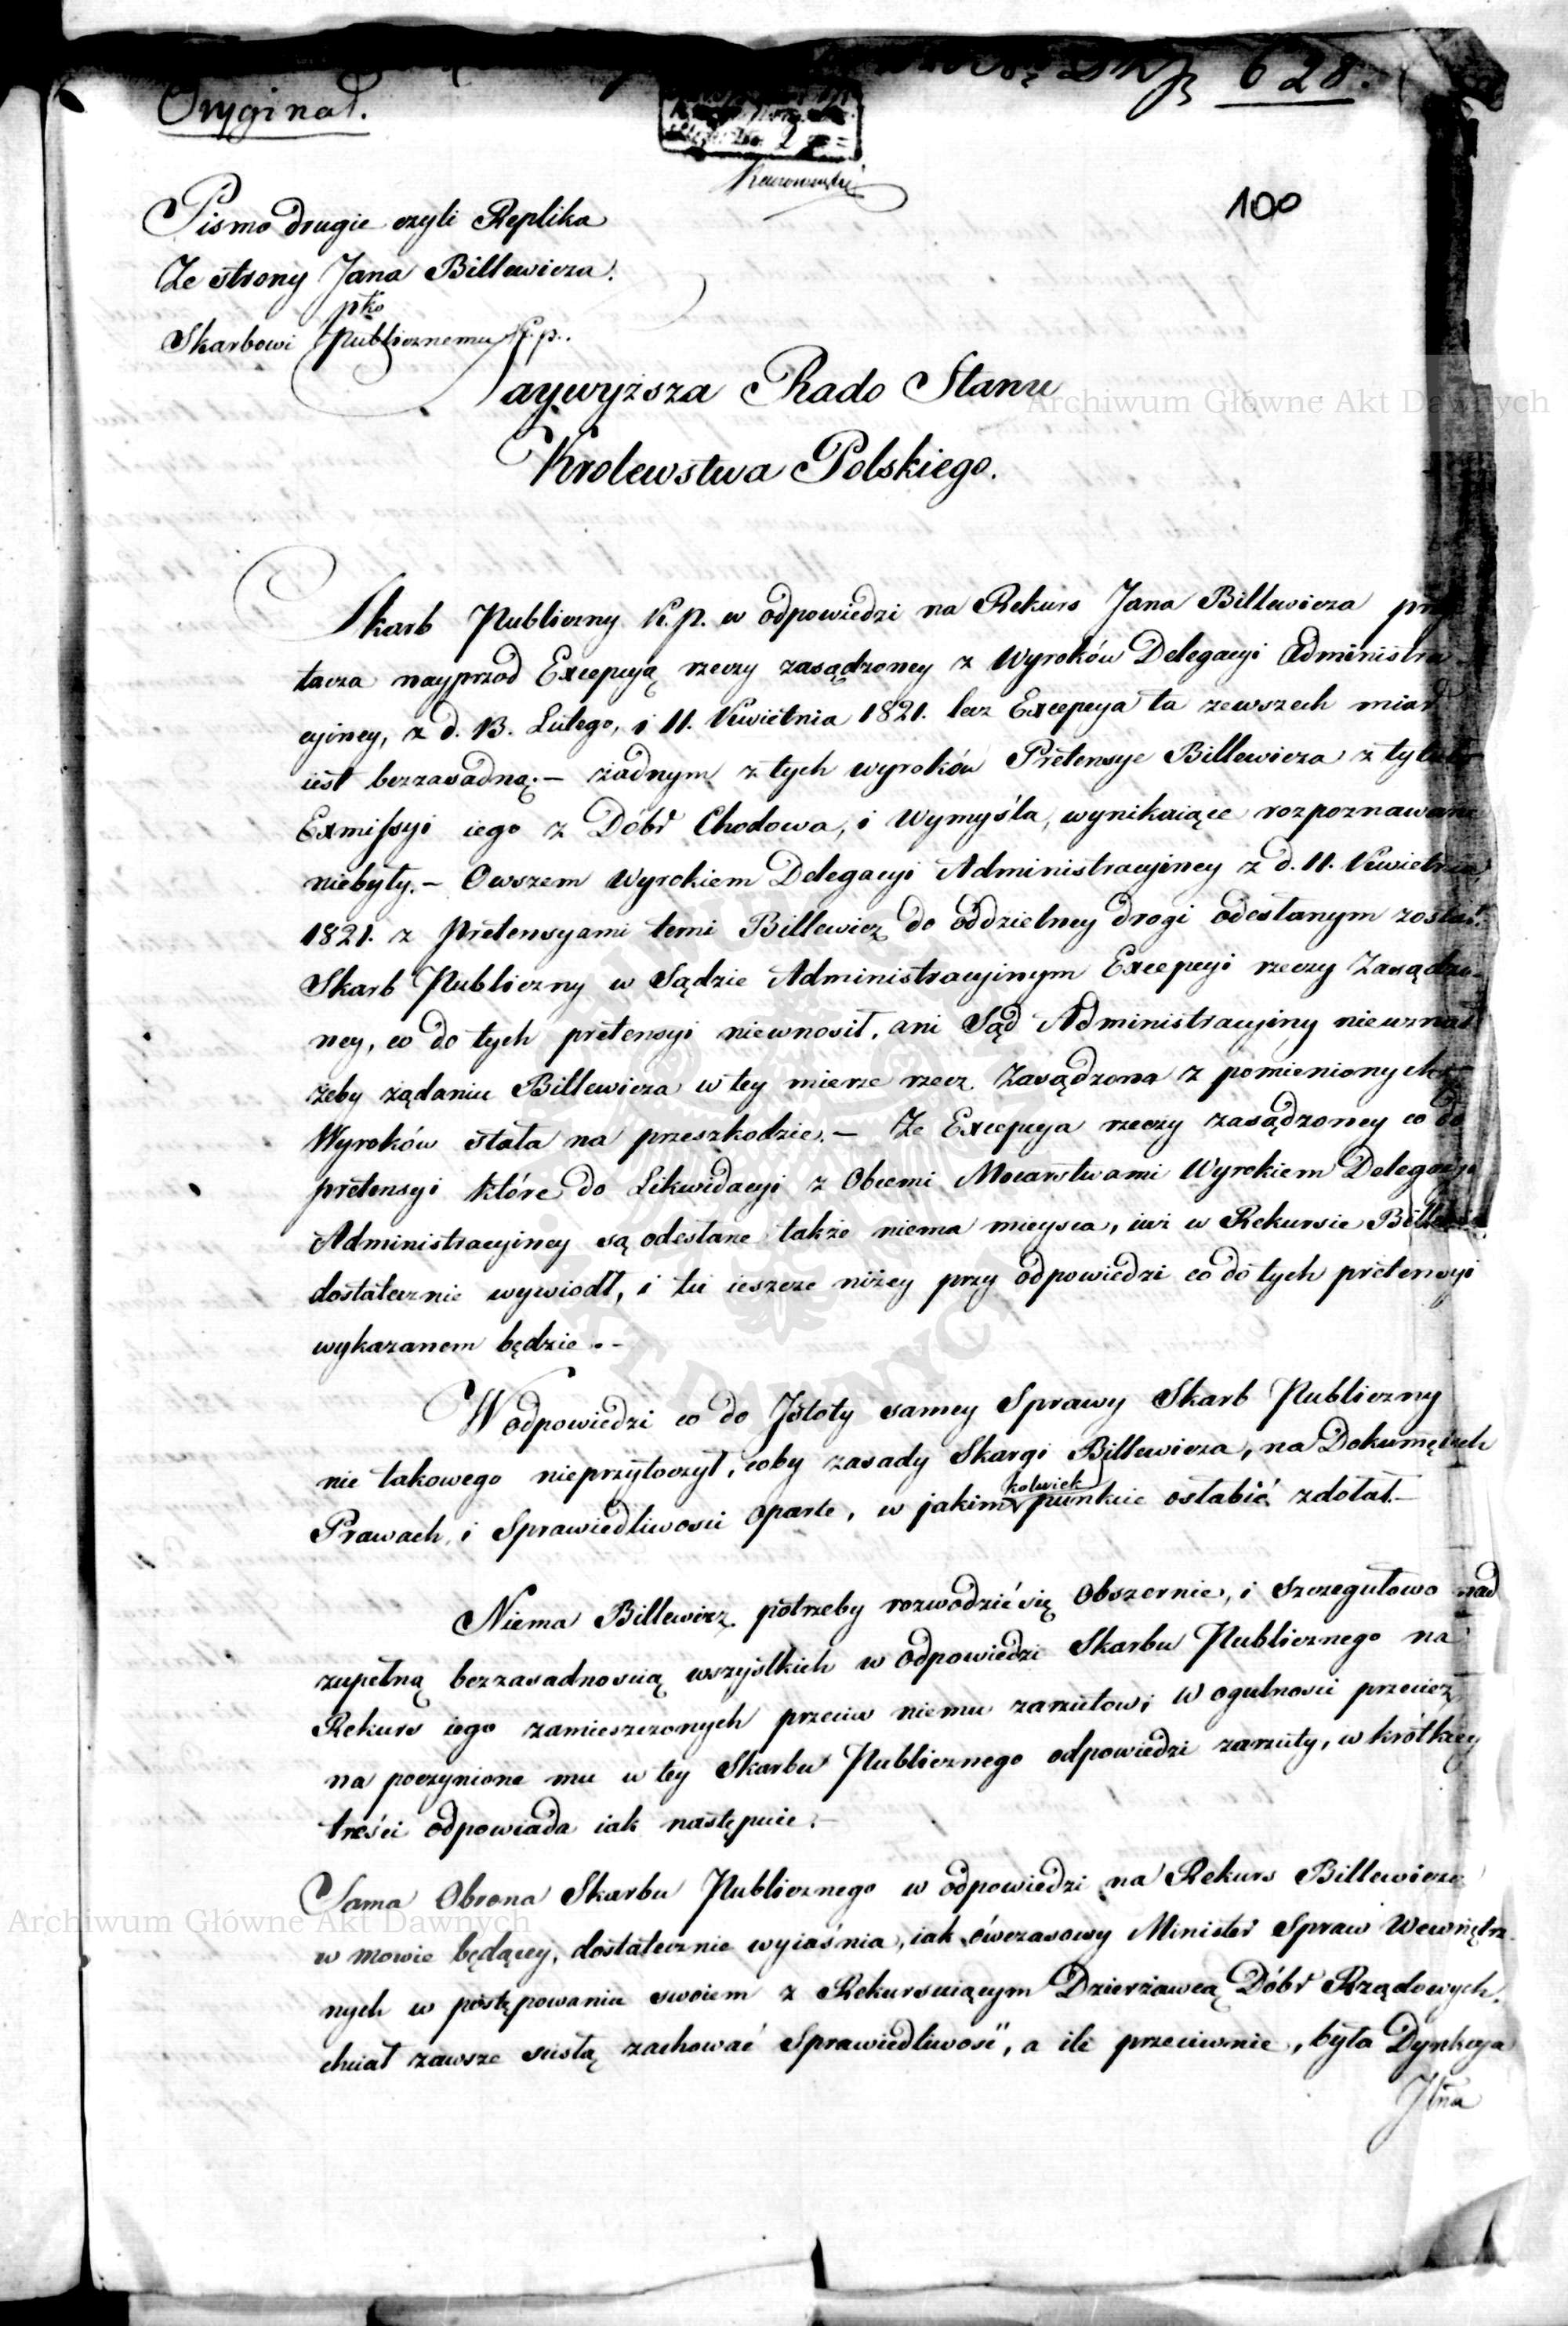 628.
Oryginał.
100
Pismo drugie czyli Replika
Ze strony Jana Billewicza.
pko
Skarbowi Publicznemu K. p.
Naywyższa Rado Stanu
Krolewstwa Polskiego.
Skarb Publiczny K. P. w odpowiedzi na Rekurs Jana Billewicza przy
tacza nayprzod Excepcyą rzeczy zasądzoney z Wyroków Delegacyi Administra
cyiney, z d. 13. Lutego, i 11. Kwietnia 1821. lecz Excepcya ta zewszech miar
iest bezzasadną. — żadnym z tych wyroków Pretensye Billewicza z tytułu
Exmissyi iego z Dóbr Chodowa, i Wymyśla, wynikaiące rozpoznawane
niebyły. — Owszem Wyrokiem Delegacyi Administracyiney z d. 11. Kwietnia
1821. z Pretensyami temi Billewicz do oddzielney drogi odesłanym został.
Skarb Publiczny w Sądzie Administracyinym Excepcyi rzeczy Zasądzo-
ney, co do tych pretensyi niewnosił, ani Sąd Administracyiny nieuznał
żeby żądaniu Billewicza w tey mierze rzecz Zasądzona z pomienionych
Wyroków stała na przeszkodzie. — Że Excepcya rzeczy zasądzoney co do
pretensyi które do Likwidacyi z Obcemi Mocarstwami Wyrokiem Delegacyi
Administracyiney są odesłane także niema mieysca, iuż w Rekursie Billewicz
dostatecznie wywiodł, i tu ieszcze niżey przy odpowiedzi co do tych pretensyi
wykazanem będzie. -
W odpowiedzi co do Istoty samey Sprawy Skarb Publiczny
nic takowego nieprzytoczył, coby zasady Skargi Billewicza, na Dokumętach
kolwiek
Prawach, i Sprawiedliwosci oparte, w jakim punkcie osłabić zdołał. —
Niema Billewicz potrzeby rozwodzić się Obszernie, i Szczegułowo nad
zupełną bezzasadnoscią wszystkich w odpowiedzi Skarbu Publicznego na
Rekurs iego zamieszczonych przeciw niemu zarzutow; W ogulnosci przecież
na poczynione mu w tey Skarbu Publicznego odpowiedzi zarzuty, w krótkiey
treści odpowiada iak następuie. —
Sama Obrona Skarbu Publicznego w odpowiedzi na Rekurs Billewicza
w mowie będącey, dostatecznie wyiaśnia, iak ówczasowy Minister Spraw Wewnętrz
nych w postępowaniu swoiem z Rekursuiącym Dzierżawcą Dóbr Rządowych,
chciał zawsze scisłą zachować Sprawiedliwosć, a ile przeciwnie, była Dyrekcya
Archiwum Główne Akt Dawnych
Archiwum Główne Akt Dawnych